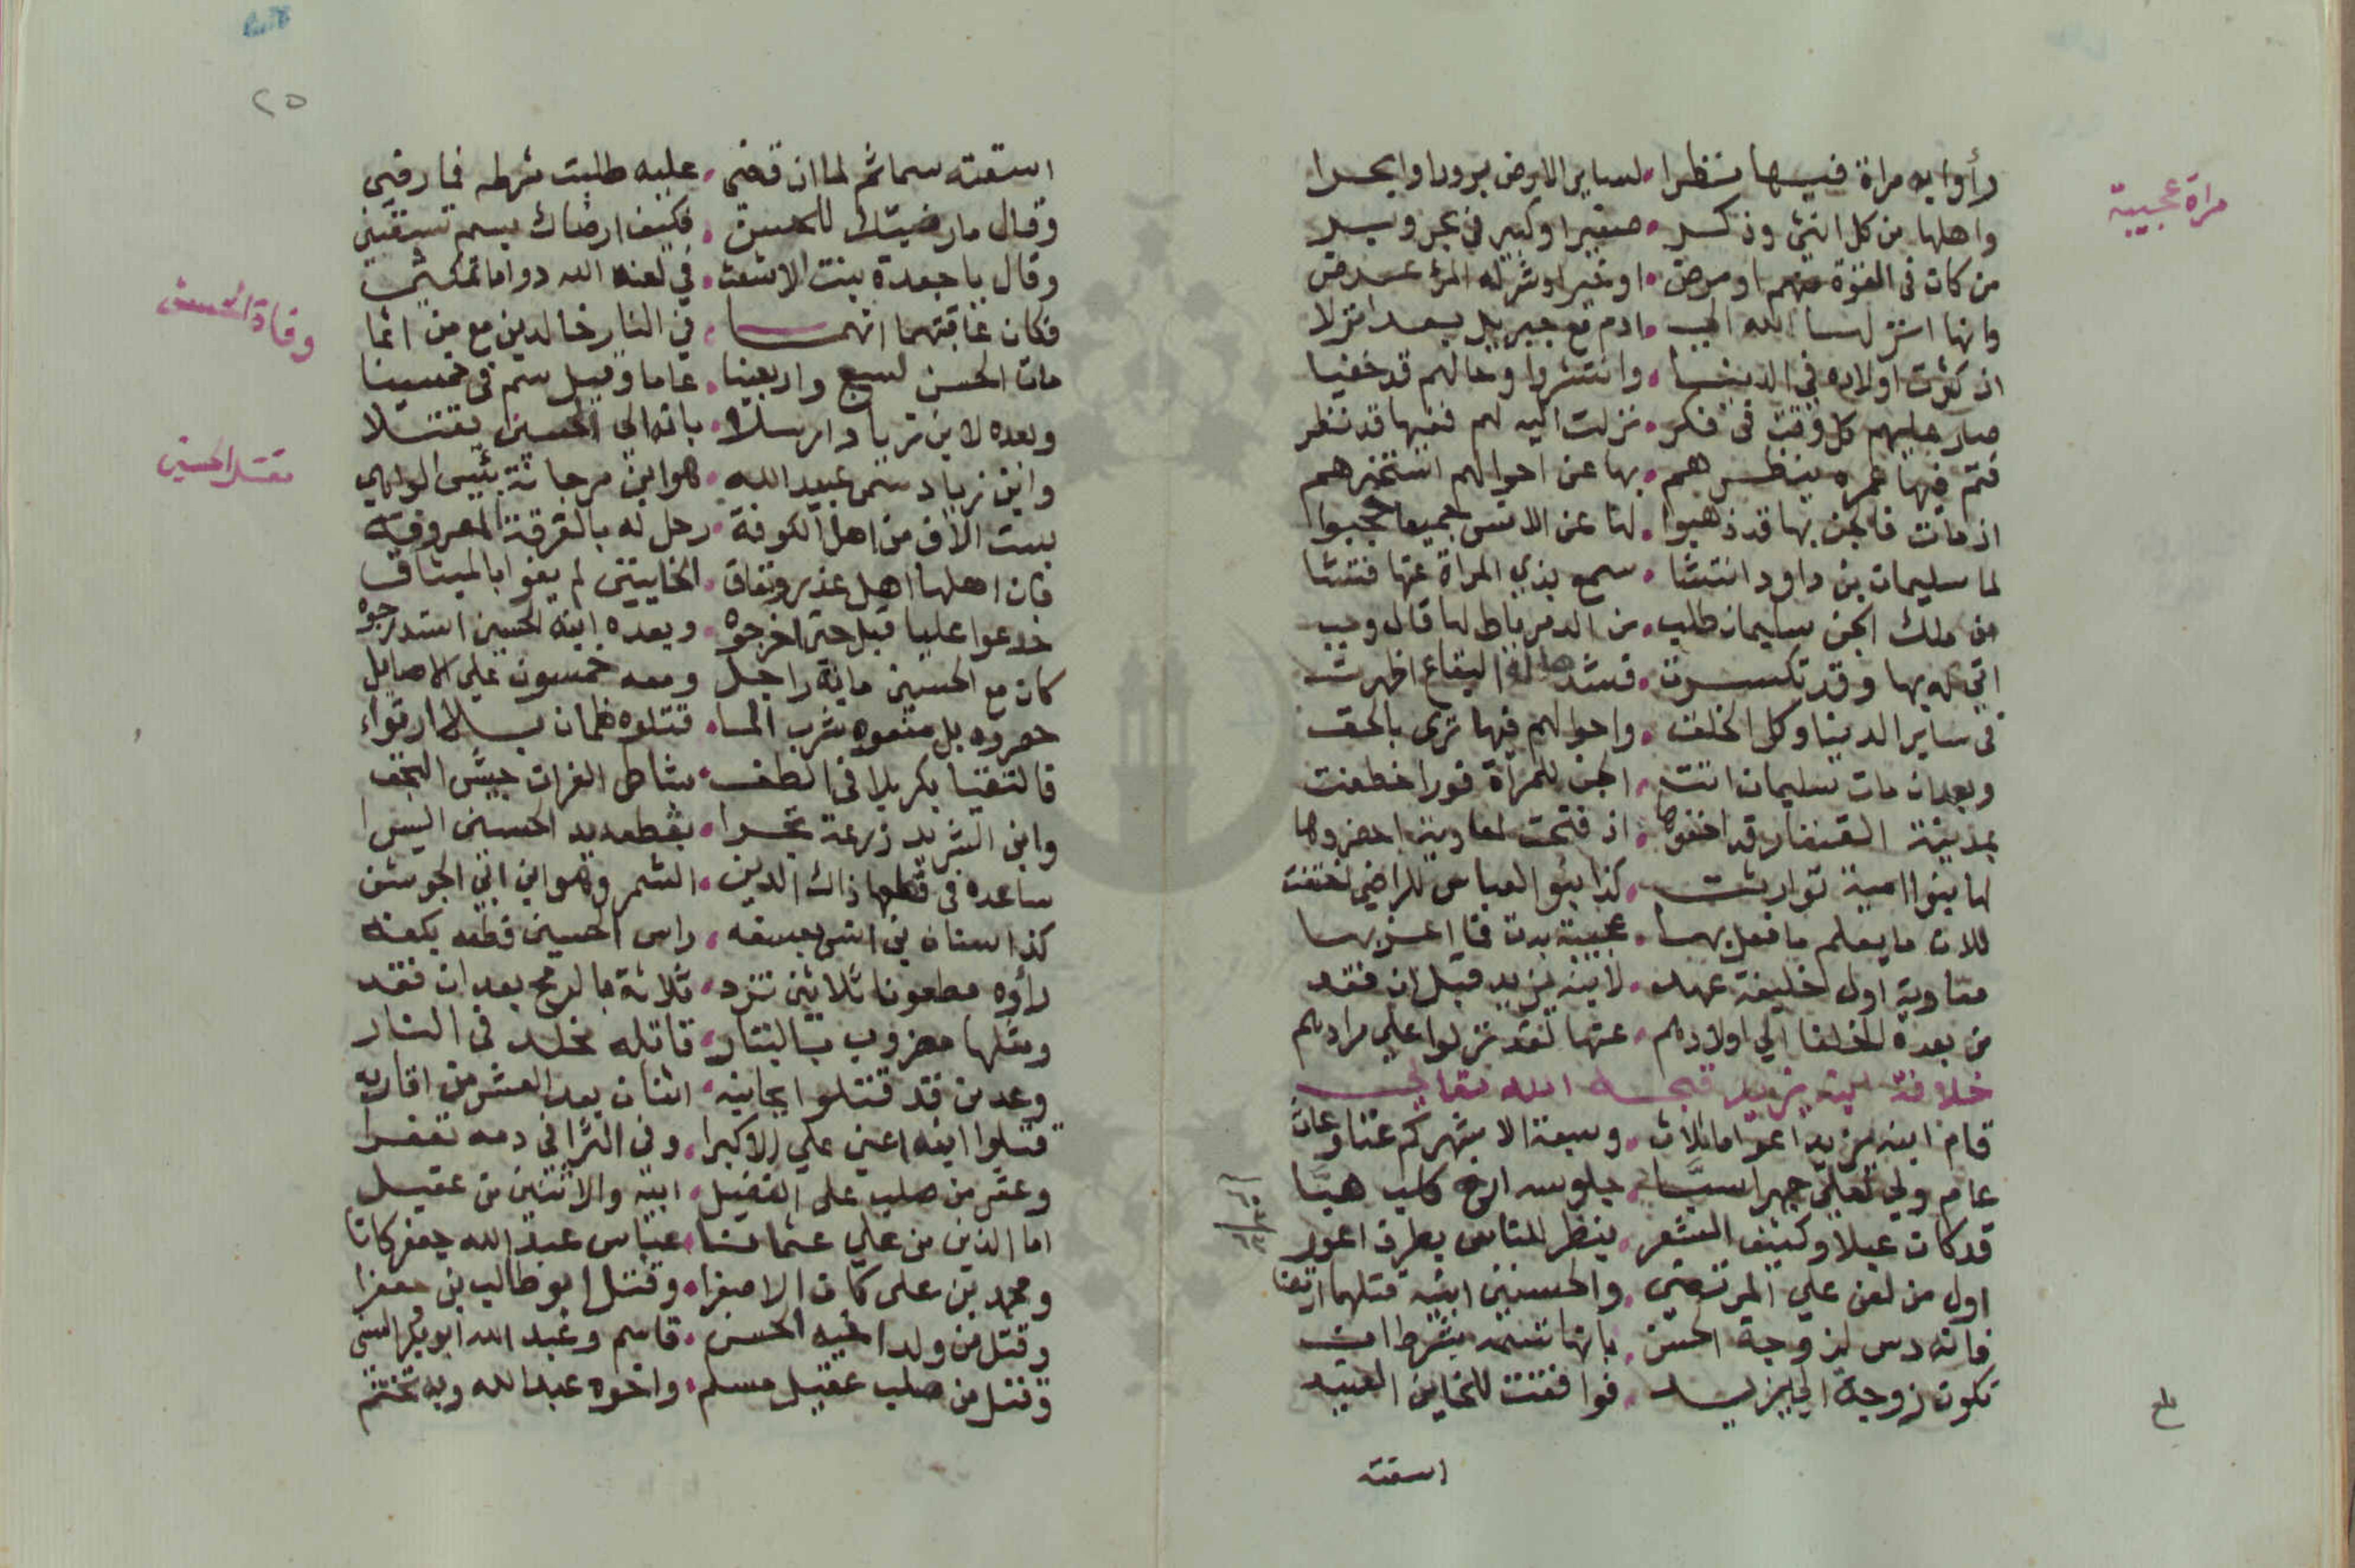 مراة عجيبة
رأوا به مراة فيها ينظرا . لساير الارض برورا وابحرا
واهلها من كل انثى وذكر . صغيرا وكبير في بحر وبر
من كان في القوة منهم او مرض . او خيرا وشر له المرء عرض
وانها انزلها الله الى . ادم مع جبريل بعد انزلا
اذ كثرت اولاده في الدينيا . وانتشروا وحالهم قد خفيا
صار عليهم كل وقت في فكر . نزلت اليه لهم ففيها قد نظر
فتم فيها عمره ينظرهم . بها عن احوالهم استخبرهم
اذ مات فالجن بها قد ذهبوا . لها عن الانس جميعا حجبوا
لما سليمان بن داود انتشا . سمع بذي المراة عنها فتشا
من ملك الجن سليمان طلب . من الدمرباط لها قال وجب
اتى له بها وقد تكسرت . فشدها له البقاع اظهرت
في ساير الدينا وكل الخلق . واحوالهم فيها ترى بالحق
وبعد ان مات سليمان اتت . الجن للمرأة فورا خطفت
بمدينة القيفار قد اخفوها . اذ فتحت لمعاوية احضروها
لها بنوا امية توارثت . كذا بنو العباس للراضي اختفت
للان ما يعلم ما فعل بها . عجيبة بدت فما اغربها
معاوية اول خليفة عهد . لابنه يزيد قبل ان فقد
من بعده الخلفا الى اولادهم . عنها لقد نزلوا على مرادهم
خلافة يزيد قبحه الله تعالى
قام ابنه يزيد اعواما ثلاث . وسبعة الاشهر كم عثا وعاث
عام ولي لعلي جهرا سبا . جلوسه ارخ كلب هبا
قد كان عبلا وكثيف الشعر . ينظر للناس بطرف اعور
اول من لعن علي المرتضى . والحسنين ابنيه قتلهما ارتضا
فانه دس لزوجة الحسن . بانها تسمه بشرط ان
تكون زوجة الى يزيد . فوافقت للخاين العبيد
اسقته
٢٥
اسقته سما ثم لما ان قضى . عليه طلبت شرطه فما رضي
وقال ما رضيتك للحسن . فكيف ارضاك بسم تسقيني
وقال يا جعدة بنت الاشعث . في لعنة الله دواما تمكثي
فكان عاقبتهما انهما . في النار خالدين مع من اثما
وفاة الحسن
مات الحسن لسبع واربعينا . عاما وقيل سم في خمسينا
وبعده لابن زياد ارسلا . بانه الى الحسين يقتلا
مقتل الحسين
وابن زياد سمي عبيد الله . هو ابن مرجانة بئس الواهي
بست الاف من اهل الكوفة . رحل له بالفرقة المعروفة
فان اهلها اهل غدر ونفاق . الخايبين لم يفوا بالميثاق
خدعوا عليا قبل حتى اخرجوه . وبعده ابنه الحسين استدرجوه
كان مع الحسين ماية راجل ومعه خمسون على الاصايل
حصروه بل منعوه شرب الما . قتلوه ظمان بلا ارتواء
فالتقيا بكربلا في الطف . بشاطي الفرات جيش النجف
وابن الشريد زرعة تجرا . بقطعه يد الحسين اليسرا
ساعده في قطعها ذاك الدين . الشمر وهو ابن ابي الجوشن
كذا سنان بن انس بسيفه . راس الحسين قطعه بكفه
رأوه مطعونا ثلاثين تزد . ثلاثة بالرمح بعد ان فقد
ومثلها مضروب بالبتار . قاتله مخلد في النار
وعد من قد قتلوا بجانبه . اثنان بعد العشر من اقاربه
قتلوا ابنه اعني علي الاكبرا . وفي الثرا في دمه تعفرا
وعشر من صلب علي الفضيل . ابنه والاثنين من عقيل
اما الذين من علي عثمانا . عباس عبد الله جعفر كانا
ومحمد بن علي كان الاصغرا . وقتل ابو طالب بن جعفرا
وقتل من ولد اخيه الحسن . قاسم وعبد الله ابو بكر السني
وقتل من صلب عقيل مسلم . واخوه عبد الله وبه نختتم